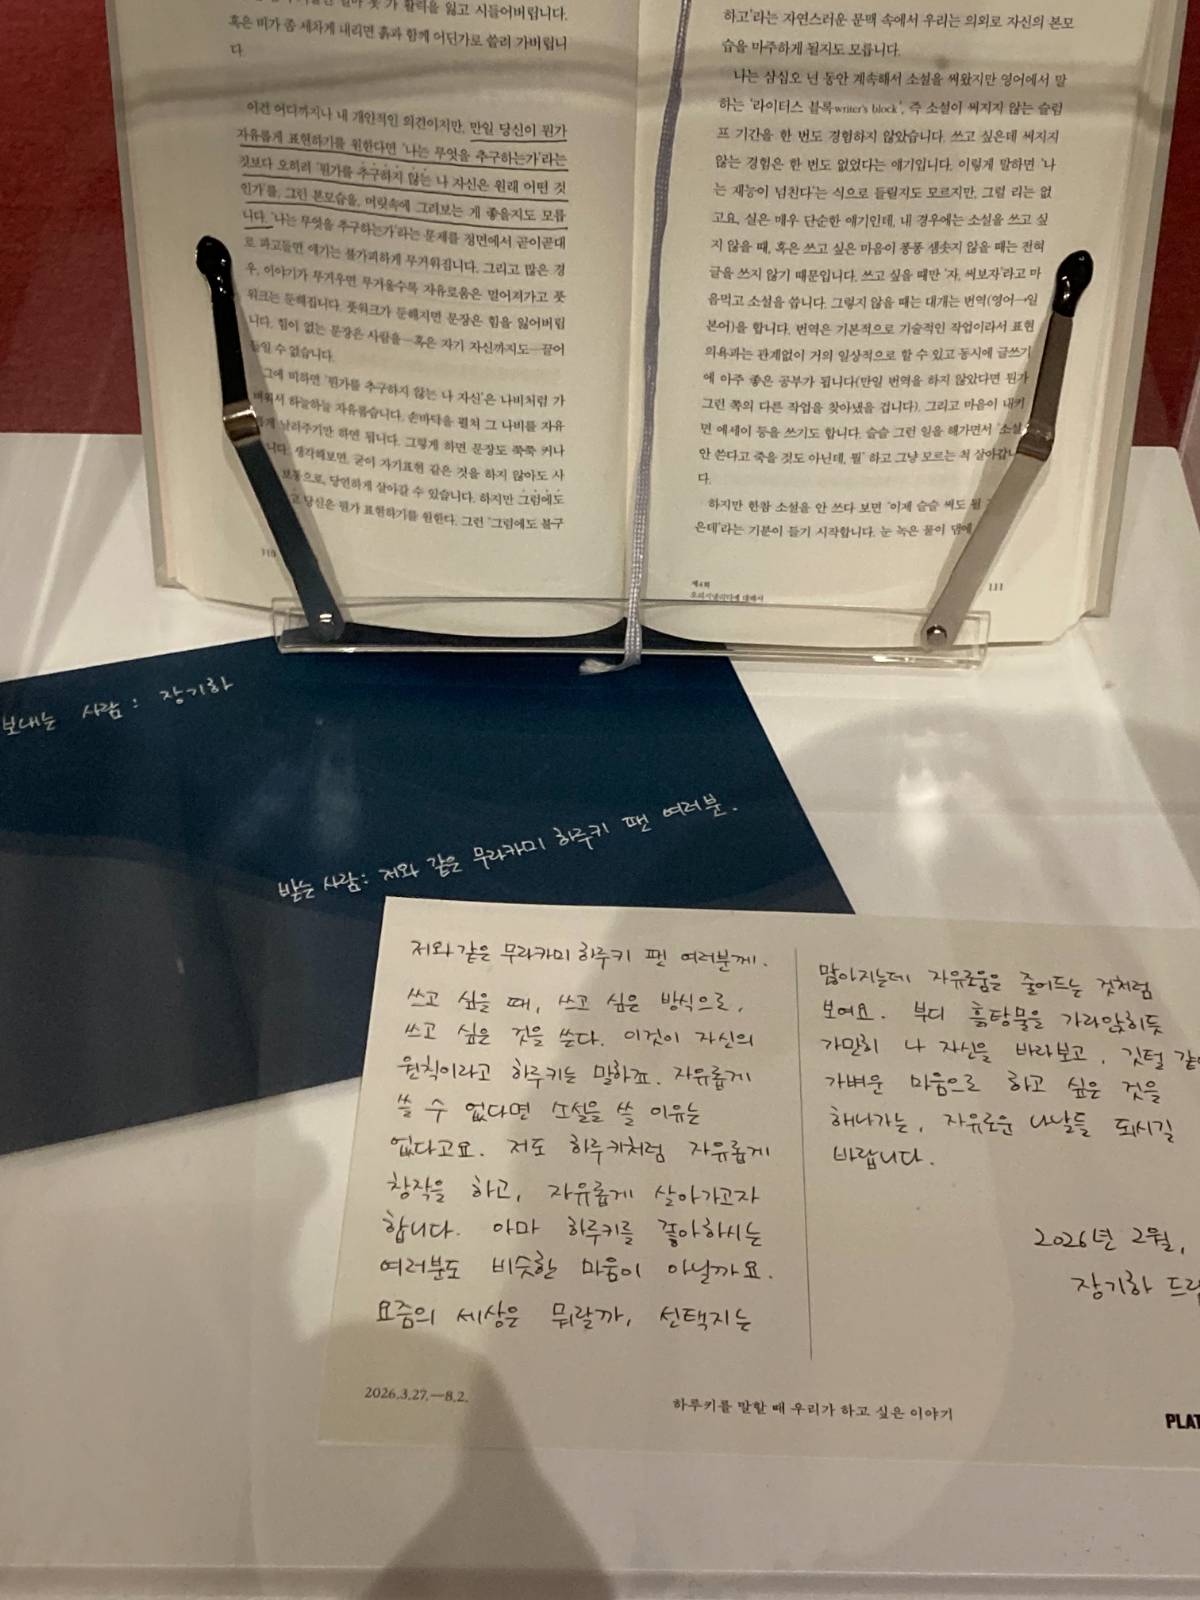 혹은 비가 좀 세차게 내리면 흙과 함께 어딘가로 쓸려 가버립니
다.
이건 어디까지나 내 개인적인 의견이지만, 만일 당신이 뭔가
자유롭게 표현하기를 원한다면 '나는 무엇을 추구하는가'라는
것보다 오히려 '뭔가를 추구하지 않는 나 자신은 원래 어떤 것
인가'를, 그런 본모습을, 머릿속에 그려보는 게 좋을지도 모릅
니다. '나는 무엇을 추구하는가'라는 문제를 정면에서 곧이곧대
로 파고들면 얘기는 불가피하게 무거워집니다. 그리고 많은 경
우, 이야기가 무거우면 무거울수록 자유로움은 멀어져가고 풋
워크는 둔해집니다. 풋워크가 둔해지면 문장은 힘을 잃어버립
니다. 힘이 없는 문장은 사람을—혹은 자기 자신까지도—끌어
들일 수 없습니다.
그에 비하면 '뭔가를 추구하지 않는 나 자신'은 나비처럼 가
벼워서 하늘하늘 자유롭습니다. 손바닥을 펼쳐 그 나비를 자유
롭게 날려주기만 하면 됩니다. 그렇게 하면 문장도 쭉쭉 커나
니다. 생각해보면, 굳이 자기표현 같은 것을 하지 않아도 사
보통으로, 당연하게 살아갈 수 있습니다. 하지만 그럼에도
고 당신은 뭔가 표현하기를 원한다. 그런 '그럼에도 불구
110
하고'라는 자연스러운 문맥 속에서 우리는 의외로 자신의 본모
습을 마주하게 될지도 모릅니다.
나는 삼십오 년 동안 계속해서 소설을 써왔지만 영어에서 말
하는 '라이터스 블록writer's block', 즉 소설이 써지지 않는 슬럼
프 기간을 한 번도 경험하지 않았습니다. 쓰고 싶은데 써지지
않는 경험은 한 번도 없었다는 얘기입니다. 이렇게 말하면 '나
는 재능이 넘친다'는 식으로 들릴지도 모르지만, 그럴 리는 없
고요, 실은 매우 단순한 얘기인데, 내 경우에는 소설을 쓰고 싶
지 않을 때, 혹은 쓰고 싶은 마음이 퐁퐁 샘솟지 않을 때는 전혀
글을 쓰지 않기 때문입니다. 쓰고 싶을 때만 '자, 써보자'라고 마
음먹고 소설을 씁니다. 그렇지 않을 때는 대개는 번역(영어→일
본어)을 합니다. 번역은 기본적으로 기술적인 작업이라서 표현
의욕과는 관계없이 거의 일상적으로 할 수 있고 동시에 글쓰기
에 아주 좋은 공부가 됩니다(만일 번역을 하지 않았다면 뭔가
그런 쪽의 다른 작업을 찾아냈을 겁니다). 그리고 마음이 내키
면 에세이 등을 쓰기도 합니다. 슬슬 그런 일을 해가면서 '소설
안 쓴다고 죽을 것도 아닌데, 뭘' 하고 그냥 모르는 척 살아갑니
다.
하지만 한참 소설을 안 쓰다 보면 '이제 슬슬 써도 될
은데'라는 기분이 들기 시작합니다. 눈 녹은 물이 댐에
제4회
오리지낼리티에 대해서
111
보내는 사람: 장기하
받는 사람: 저와 같은 무라카미 하루키 팬 여러분.
저와 같은 무라카미 하루키 팬 여러분께.
쓰고 싶을 때, 쓰고 싶은 방식으로,
쓰고 싶은 것을 쓴다. 이것이 자신의
원칙이라고 하루키는 말하죠. 자유롭게
쓸 수 없다면 소설을 쓸 이유는
없다고요. 저도 하루키처럼 자유롭게
창작을 하고, 자유롭게 살아가고자
합니다. 아마 하루키를 좋아하시는
여러분도 비슷한 마음이 아닐까요.
요즘의 세상은 뭐랄까, 선택지는
많아지는데 자유로움은 줄어드는 것처럼
보여요. 부디 흙탕물을 가라앉히듯
가만히 나 자신을 바라보고, 깃털 같
가벼운 마음으로 하고 싶은 것을
해나가는, 자유로운 나날들 되시길
바랍니다.
2026년 2월,
장기하 드림
2026.3.27.—8.2.
하루키를 말할 때 우리가 하고 싶은 이야기
PLAT